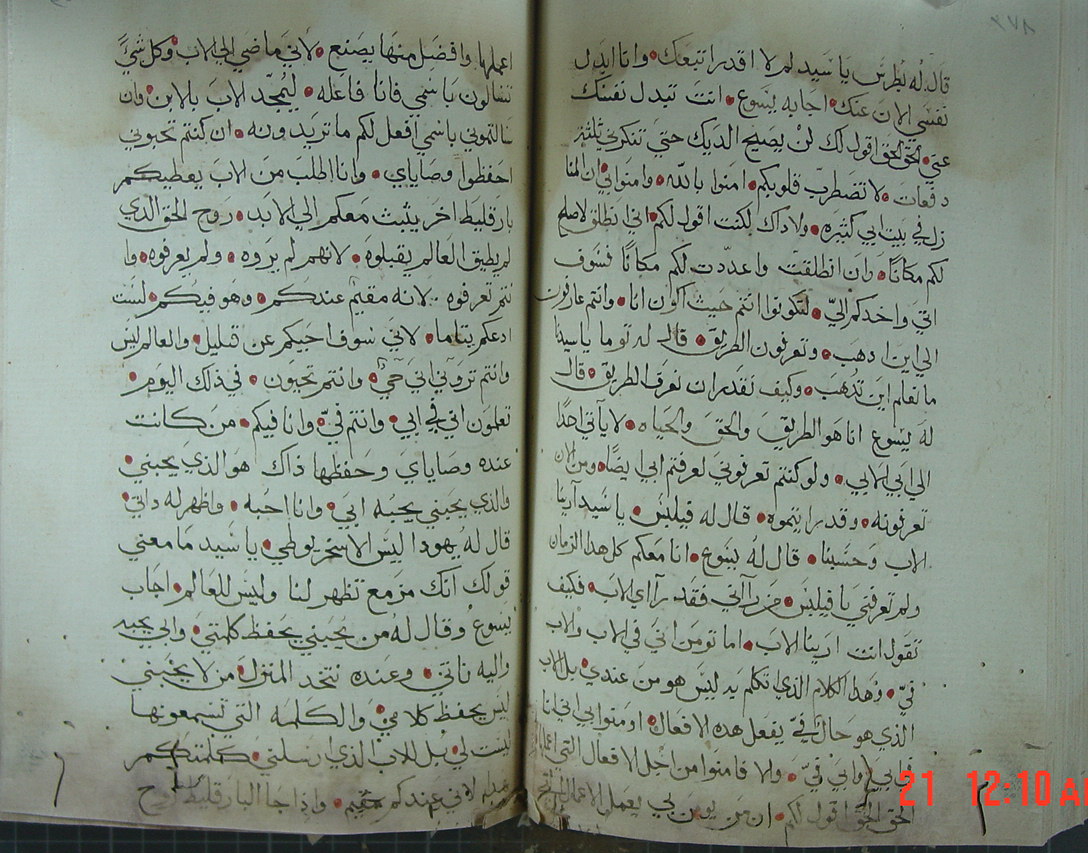 ٢٧٨
قال له بطرس يا سيد لم لا اقدر اتبعك وانا ابدل
نفسي الان عنك اجابه يسوع انت تبدل نفسك
عني الحق الحق اقول لك لن يصيح الديك حتى تنكرني ثلثة
دفعات لا تضطرب قلوبكم امنوا بالله وامنوا بي ان المنا
زل في بيت ابي كثيره ولا ذاك لكنت اقول لكم اني انطلق لاصلح
لكم مكانًا وان انطلقت واعددت لكم مكانًا فسوف
اتي واخدكم اليّ لتكونوا انتم حيث اكون انا وانتم عارفون
الي اين ادهب وتعرفون الطريق قال له توما يا سيدنا
ما نعلم اين تدهب وكيف نقدر ان نعرف الطريق قال
له يسوع انا هو الطريق والحق والحياه لا ياتي احدًا
الي ابي الا بي ولو كنتم تعرفوني لعرفتم ابي ايضًا ومن الان
تعرفونه وقد رايتموه قال له فيلبس يا سيد ارينا
الاب وحسبنا قال له يسوع انا معكم كل هدا الزمان
ولم تعرفني يا فيلبس من رااني فقد راي الاب فكيف
تقول انت ارينا الاب اما تومن اني في الاب والاب
فيّ وهدا الكلام الذي اتكلم به ليس هو من عندي بل الاب
الذي هو حال فيّ يفعل هده الافعال اومنوا بي اني انا
في ابي وابي فيّ والا فامنوا من اجل الافعال التي اعملها
الحق الحق اقول لكم ان من يومن بي يعمل الاعمال التي
اعملها وافضل منها يصنع لاني ماضي الي الاب وكل شيً
تسالون باسمي فانا فاعله ليُمجد الاب بالابن وان
سالتموني باسمي افعل لكم ما تريدونه ان كنتم تحبوني
احفظوا وصاياي وانا اطلب من الاب يعطيكم
بارقليط اخر يثبت معكم الي الابد روح الحق الذي
لم يطيق العالم يقبلوه لانهم لم يروه ولم يعرفوه وا
نتم تعرفوه لانه مقيم عندكم وهو فيكم لست
ادعكم يتاما لاني سوف اجيكم عن قليل والعالم ليس
وانتم تروني اني حي وانتم تحيون في ذلك اليوم
تعلمون اني في ابي وانتم فيّ وانا فيكم من كانت
عنده وصاياي وحفظها ذاك هو الذي يحبني
والذي يحبني يحبه ابي وانا احبه واظهر له ذاتي
قال له يهودا ليس الاسخريوطي يا سيد ما معني
قولك انك مزمع تظهر لنا وليس للعالم اجاب
يسوع وقال له من يحبني يحفظ كلمتي وابي يحبه
واليه ناتي وعنده نتخد المنزل من لا يحبني
ليس يحفظ كلامي والكلمه التي تسمعونها
ليست لي بل للاب الذي ارسلني كلمتكم
بهدا لاني عندكم مقيم واذا جا البارقليط روح
21 12:10 A